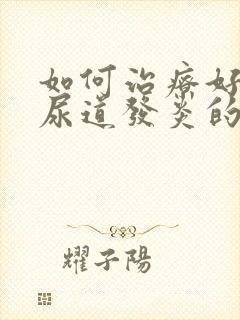 如何治療好
尿道發炎的
耀子陽